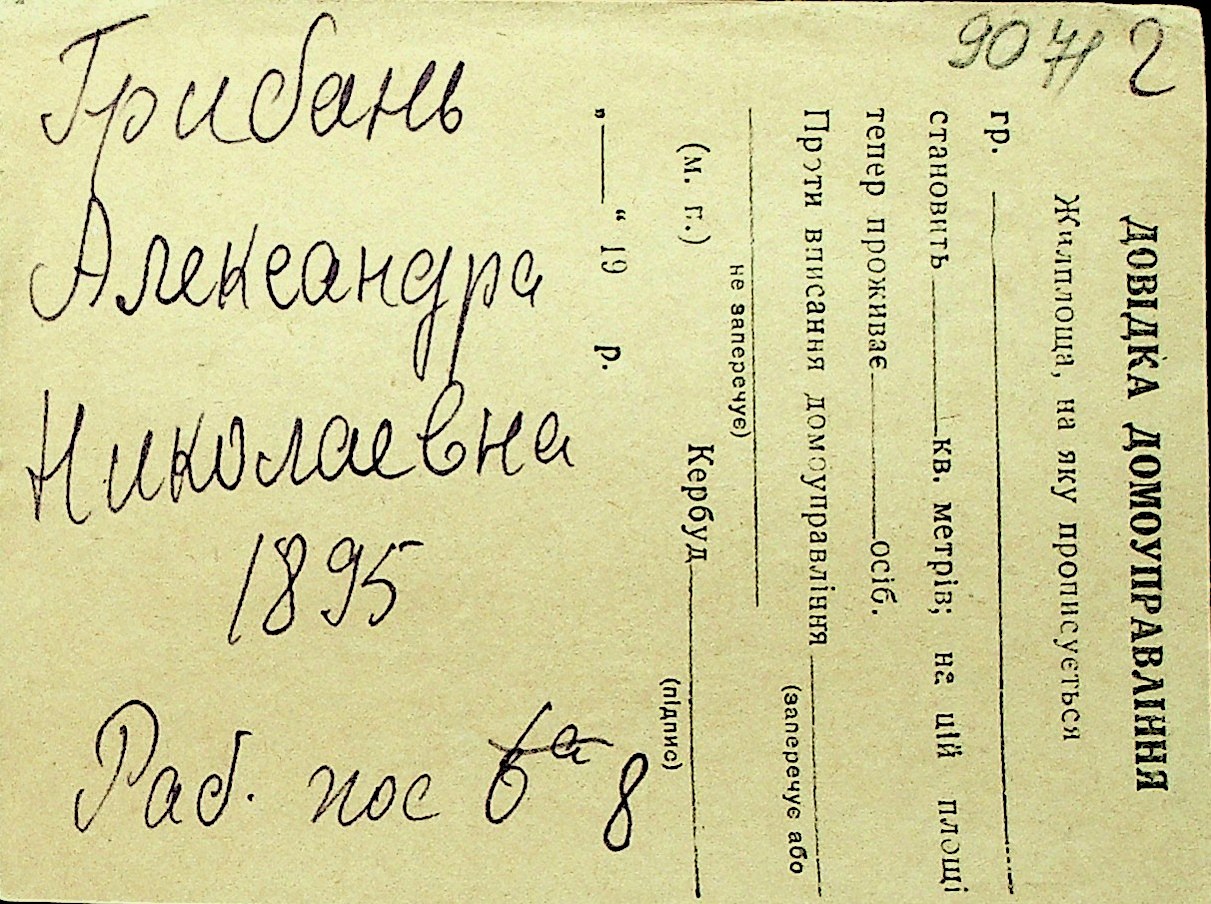 9071 2
Грибань
Александра
Николаевна
1895
Раб. пос 6а 8
ДОВІДКА ДОМОУПРАВЛІННЯ
Жилплоща, на яку прописується
гр.
становить кв. метрів; на цій площі
тепер проживає осіб.
Проти вписання домоуправління
(заперечує або
не заперечує)
(м. п.) Кербуд
(підпис)
„ “ 19 р.